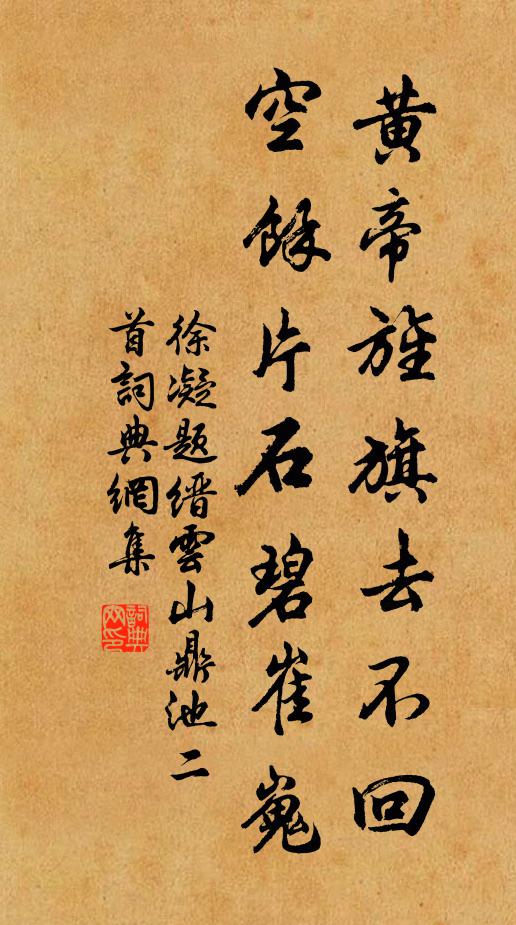 黄帝旌旗去不回
空餘片石碧崔嵬
徐凝题缙雲山鼎池二
首詞典網集
詞典网印